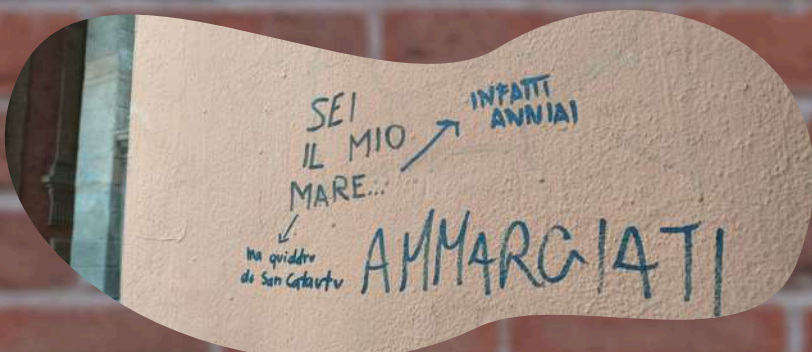 SEI
IL MIO
MARE...
INFATTI
ANNIAI
ma quiddru
do San Catautu
AMMARCIATI